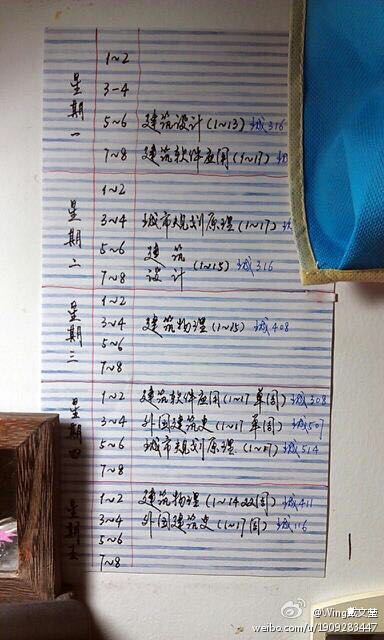 星期一
1~2
3~4
5~6 建筑设计(1~13) 城316
7~8 建筑软件应用(1~17) 城
星期二
1~2
3~4 城市规划原理(1~17) 城
5~6 建筑
7~8 设计 (1~15) 城316
星期三
1~2
3~4 建筑物理(1~15) 城408
5~6
7~8
星期四
1~2 建筑软件应用(1~17 单周) 城308
3~4 外国建筑史(1~17 单周) 城507
5~6 城市规划原理(1~17) 城514
7~8
星期五
1~2 建筑物理(1~14双周) 城411
3~4 外国建筑史(1~17周) 城116
5~6
7~8
weibo.com/u/1909283447